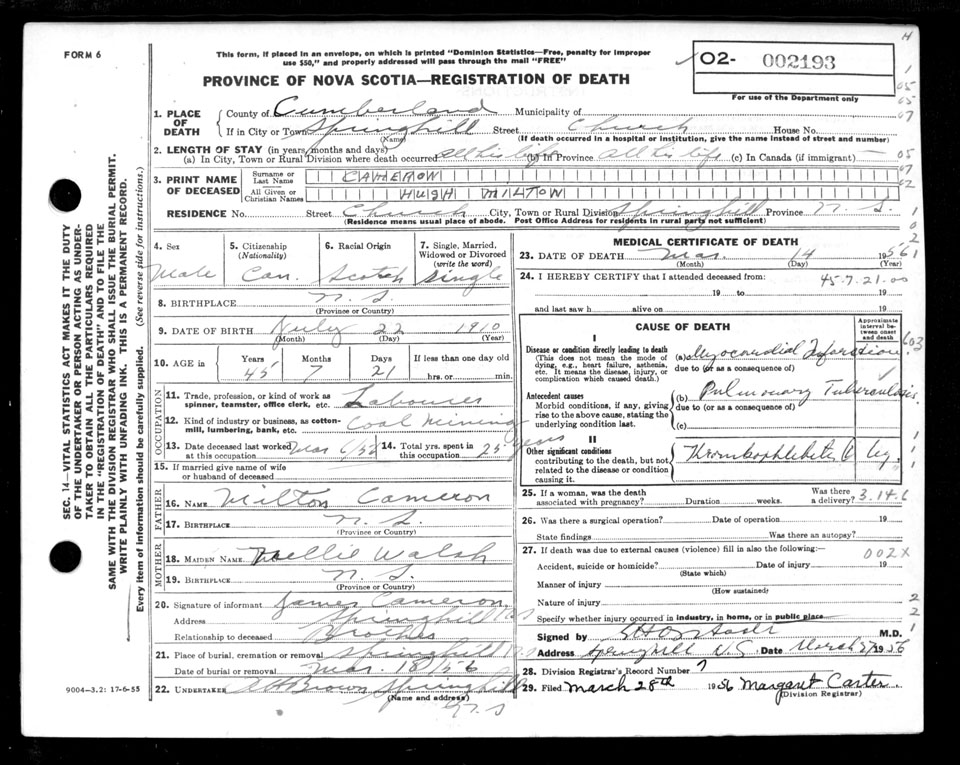 FORM 6
This form, if placed in an envelope, on which is printed "Dominion Statistics—Free, penalty for improper
use $50," and properly addressed will pass through the mail "FREE"
PROVINCE OF NOVA SCOTIA—REGISTRATION OF DEATH
02- 002193
For use of the Department only
SEC. 14—VITAL STATISTICS ACT MAKES IT THE DUTY
OF THE UNDERTAKER OR PERSON ACTING AS UNDER-
TAKER TO OBTAIN ALL THE PARTICULARS REQUIRED
IN THE "REGISTRATION OF DEATH" AND TO FILE THE
SAME WITH THE DIVISION REGISTRAR WHO SHALL ISSUE THE BURIAL PERMIT.
WRITE PLAINLY WITH UNFADING INK. THIS IS A PERMANENT RECORD.
Every item of information should be carefully supplied. (See reverse side for instructions.)
1. PLACE OF DEATH
County of Cumberland Municipality of
If in City or Town Springhill Street Church House No.
(Name) (If death occurred in a hospital or institution, give the name instead of street and number)
2. LENGTH OF STAY (in years, months and days)
(a) In City, Town or Rural Division where death occurred all his life (b) In Province all his life (c) In Canada (if immigrant) —
3. PRINT NAME OF DECEASED
Surname or Last Name CAMERON
All Given or Christian Names HUGH MILTON
RESIDENCE No. Street Church City, Town or Rural Division Springhill Province N. S.
(Residence means usual place of abode. Post Office Address for residents in rural parts not sufficient)
4. Sex Male
5. Citizenship (Nationality) Can.
6. Racial Origin Scotch
7. Single, Married, Widowed or Divorced (write the word) Single
8. BIRTHPLACE N. S.
(Province or Country)
9. DATE OF BIRTH July 22 1910
(Month) (Day) (Year)
10. AGE in Years 45 Months 7 Days 21 If less than one day old hrs. or min.
OCCUPATION
11. Trade, profession, or kind of work as spinner, teamster, office clerk, etc. Labourer
12. Kind of industry or business, as cotton-mill, lumbering, bank, etc. Coal Mining
13. Date deceased last worked at this occupation Mar 6/52
14. Total yrs. spent in this occupation 25 years
15. If married give name of wife or husband of deceased
FATHER
16. NAME Milton Cameron
17. BIRTHPLACE N. S.
(Province or Country)
MOTHER
18. MAIDEN NAME Nellie Walsh
19. BIRTHPLACE N. S.
(Province or Country)
20. Signature of informant James Cameron
Address Springhill N S
Relationship to deceased Brother
21. Place of burial, cremation or removal Springhill N.S
Date of burial or removal Mar. 18/56
22. UNDERTAKER Brown Springhill
(Name and address) N. S
9004-3.2: 17-6-55
MEDICAL CERTIFICATE OF DEATH
23. DATE OF DEATH Mar. 14 1956
(Month) (Day)
24. I HEREBY CERTIFY that I attended deceased from: 45-7-21-00
19 to 19
and last saw h alive on 19
CAUSE OF DEATH
Approximate interval between onset and death
I
Disease or condition directly leading to death
(This does not mean the mode of dying, e.g., heart failure, asthenia, etc. It means the disease, injury, or complication which caused death.)
(a) Myocardial Infarction
due to (or as a consequence of)
Antecedent causes
Morbid conditions, if any, giving rise to the above cause, stating the underlying condition last.
(b) Pulmonary Tuberculosis
due to (or as a consequence of)
(c)
II
Other significant conditions contributing to the death, but not related to the disease or condition causing it.
Thrombophlebitis leg
25. If a woman, was the death associated with pregnancy? Duration weeks. Was there a delivery? 3.14.6
26. Was there a surgical operation? Date of operation 19
State findings Was there an autopsy?
27. If death was due to external causes (violence) fill in also the following:— 002X
Accident, suicide or homicide? Date of injury 19
(State which)
Manner of injury
(How sustained)
Nature of injury
Specify whether injury occurred in industry, in home, or in public place
Signed by M.D.
Address Springhill N.S. Date March 27 1956
28. Division Registrar's Record Number 7
29. Filed March 28th 1956 Margaret Carter
(Division Registrar)